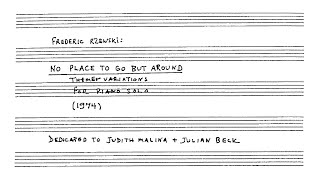 FREDERIC RZEWSKI:
NO PLACE TO GO BUT AROUND
THEME & VARIATIONS
FOR PIANO SOLO
(1974)
DEDICATED TO JUDITH MALINA + JULIAN BECK